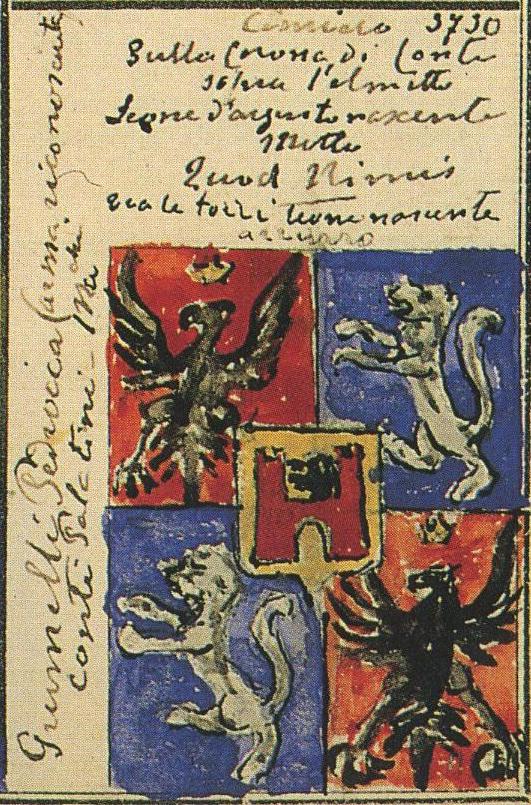 Cimiero 3730
Sulla Corona di Conte
sopra l'elmetto
Leone d'argento nascente
Motto
Quod Nimis
tra le torri leone nascente
azzurro
Grumelli Pedrocca (arma riconosciuta
conti Palatini -